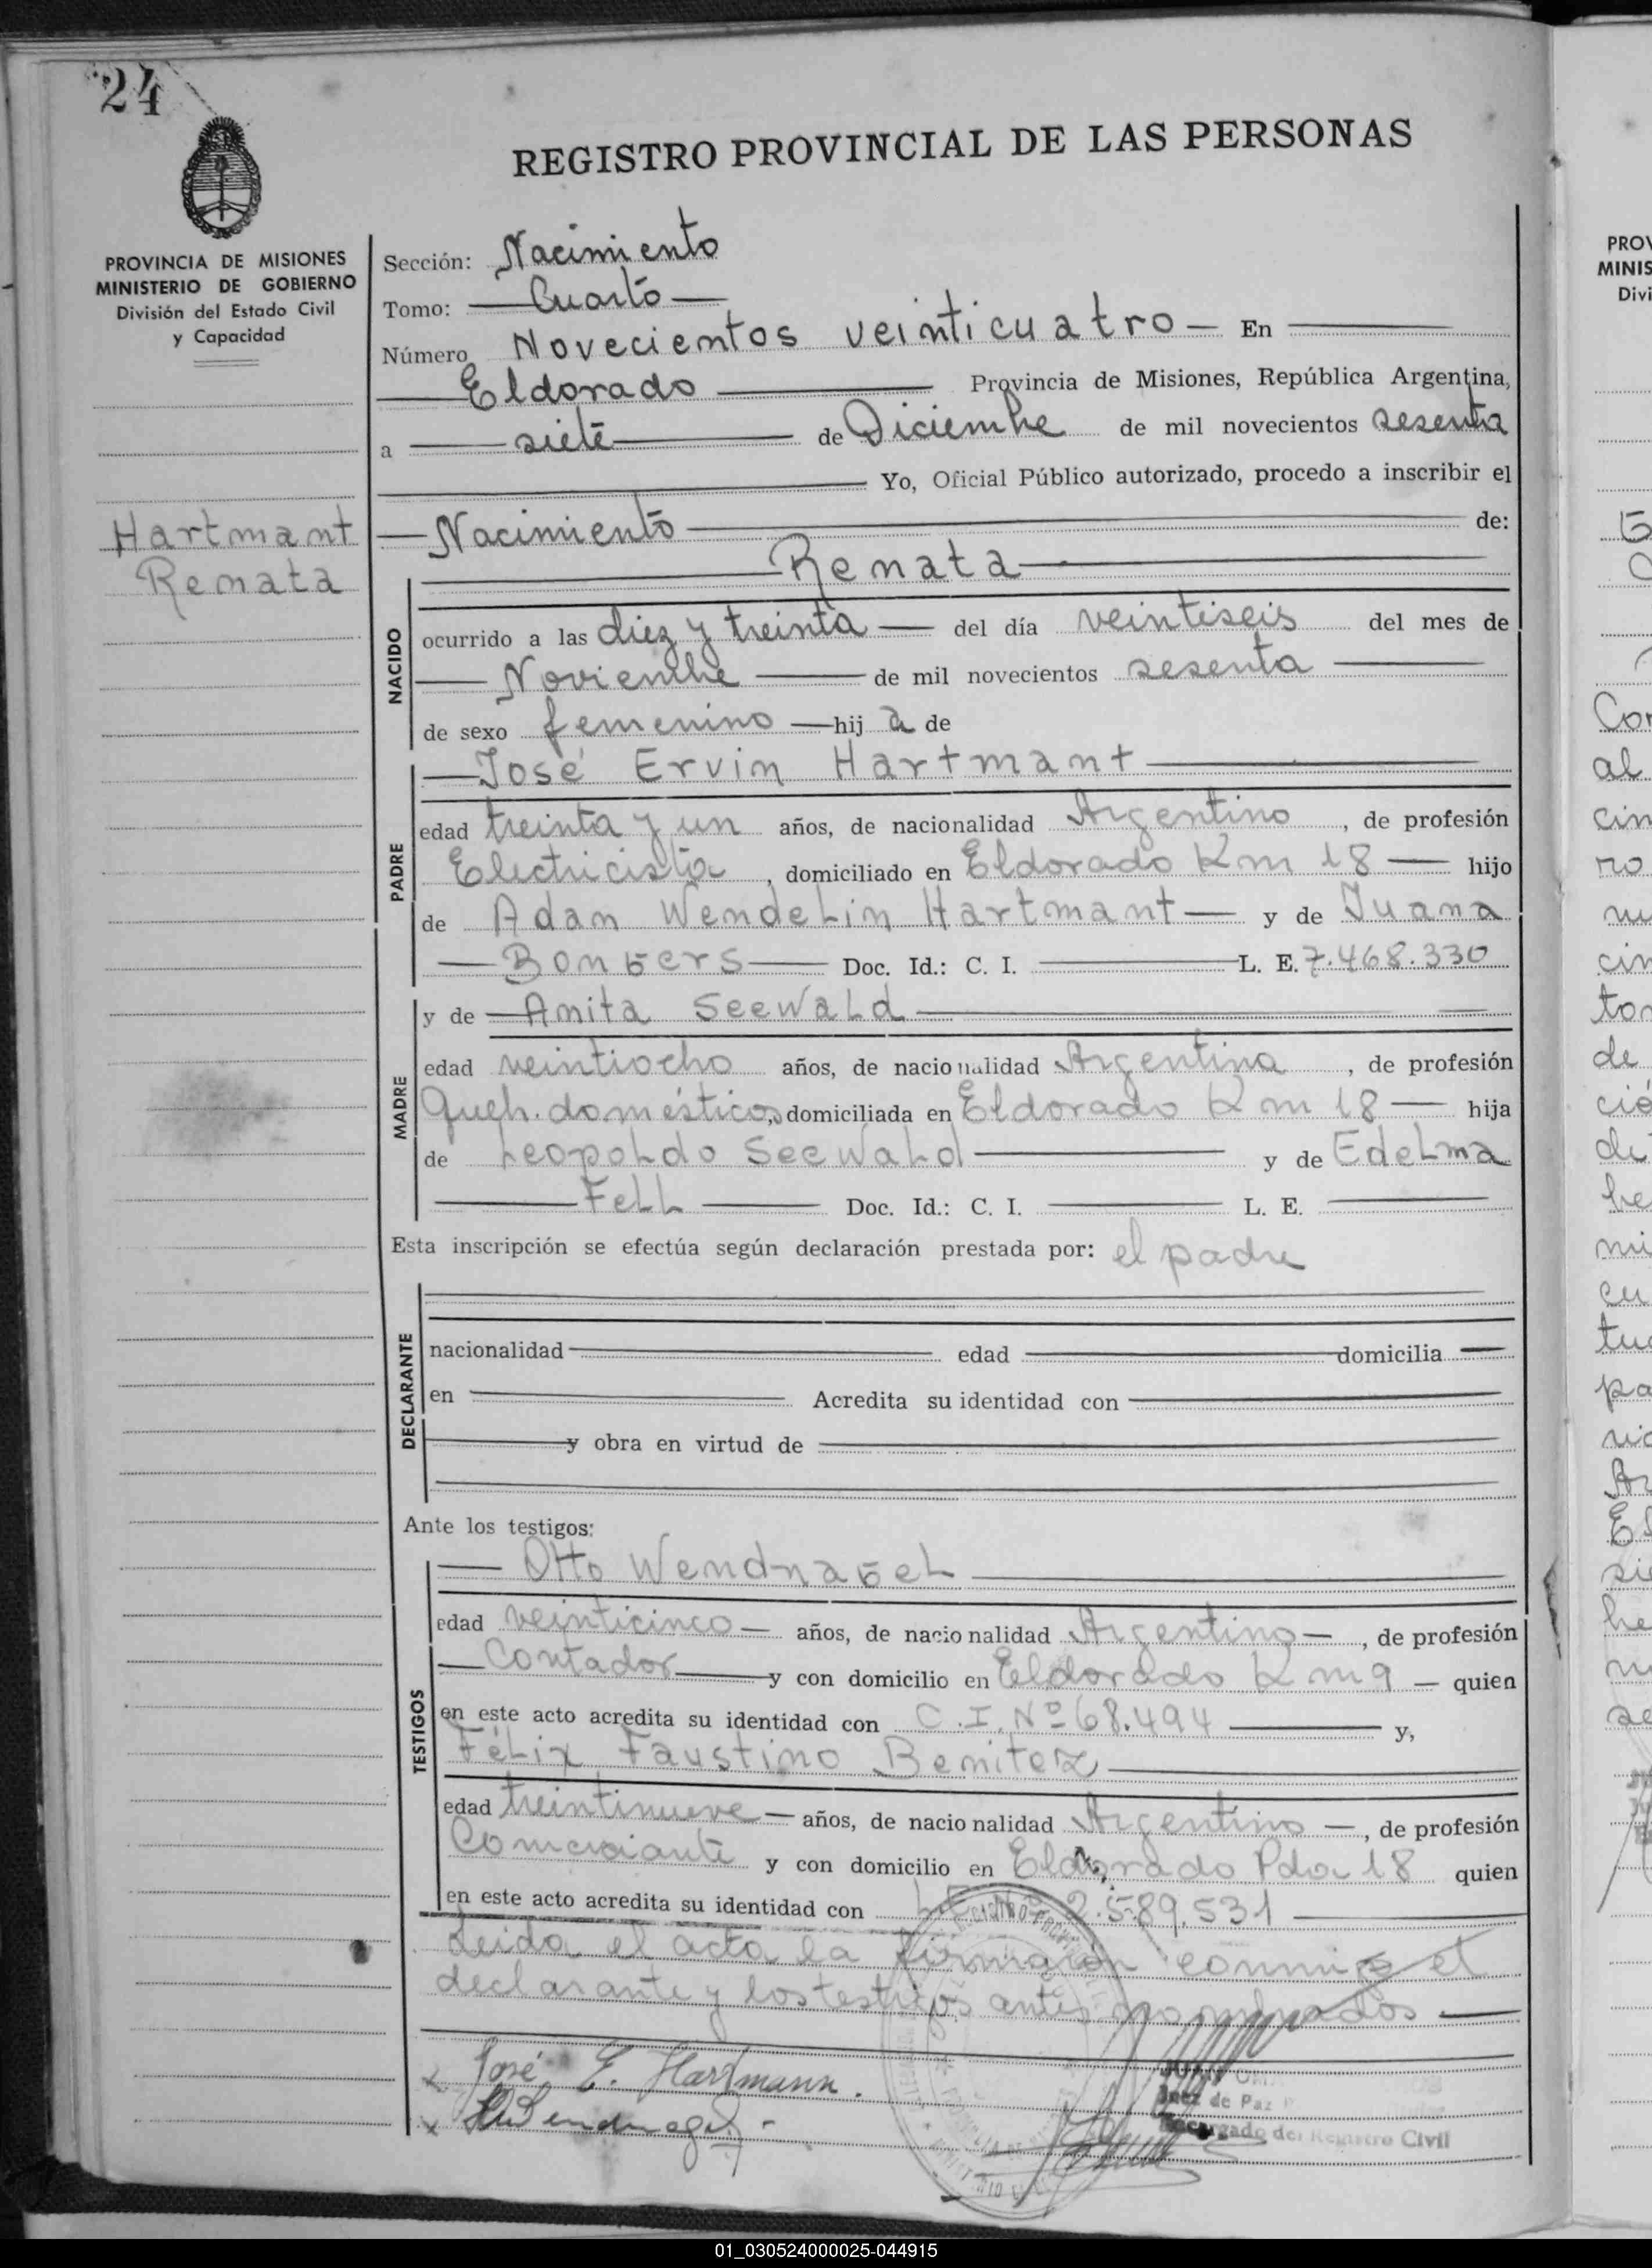 24
REGISTRO PROVINCIAL DE LAS PERSONAS
PROVINCIA DE MISIONES
MINISTERIO DE GOBIERNO
División del Estado Civil
y Capacidad
Hartmant
Renata
Sección: Nacimiento
Tomo: Cuarto
Número Novecientos veinticuatro En
Eldorado Provincia de Misiones, República Argentina,
a siete de Diciembre de mil novecientos sesenta
Yo, Oficial Público autorizado, procedo a inscribir el
Nacimiento de:
Renata
NACIDO
ocurrido a las diez y treinta del día veintiseis del mes de
Novienbre de mil novecientos sesenta
de sexo femenino hij a de
José Ervin Hartmant
PADRE
edad treinta y un años, de nacionalidad Argentino, de profesión
Electricista, domiciliado en Eldorado Km 18 hijo
de Adan Wendelin Hartmant y de Juana
Bongers Doc. Id.: C. I. L. E. 7.468.330
y de Anita Seewald
MADRE
edad veintiocho años, de nacionalidad Argentina, de profesión
Queh. domésticos, domiciliada en Eldorado Km 18 hija
de Leopoldo Seewald y de Edelma
Fell Doc. Id.: C. I. L. E.
Esta inscripción se efectúa según declaración prestada por: el padre
DECLARANTE
nacionalidad edad domicilia
en Acredita su identidad con
y obra en virtud de
Ante los testigos:
Otto Wendnagel
TESTIGOS
edad veinticinco años, de nacionalidad Argentino, de profesión
Contador y con domicilio en Eldorado Km 9 quien
en este acto acredita su identidad con C.I. Nº 68.494 y,
Félix Faustino Benitez
edad treintinueve años, de nacionalidad Argentino, de profesión
Comerciante y con domicilio en Eldorado Pda 18 quien
en este acto acredita su identidad con L.E. Nº 2.589.531
Leida el acta la firmaron conmigo el
declarante y los testigos antes nombrados
x José E. Hartmann.
x
Juez de Paz
Encargado del Registro Civil
PROV
MINIS
Divi
01_030524000025-044915